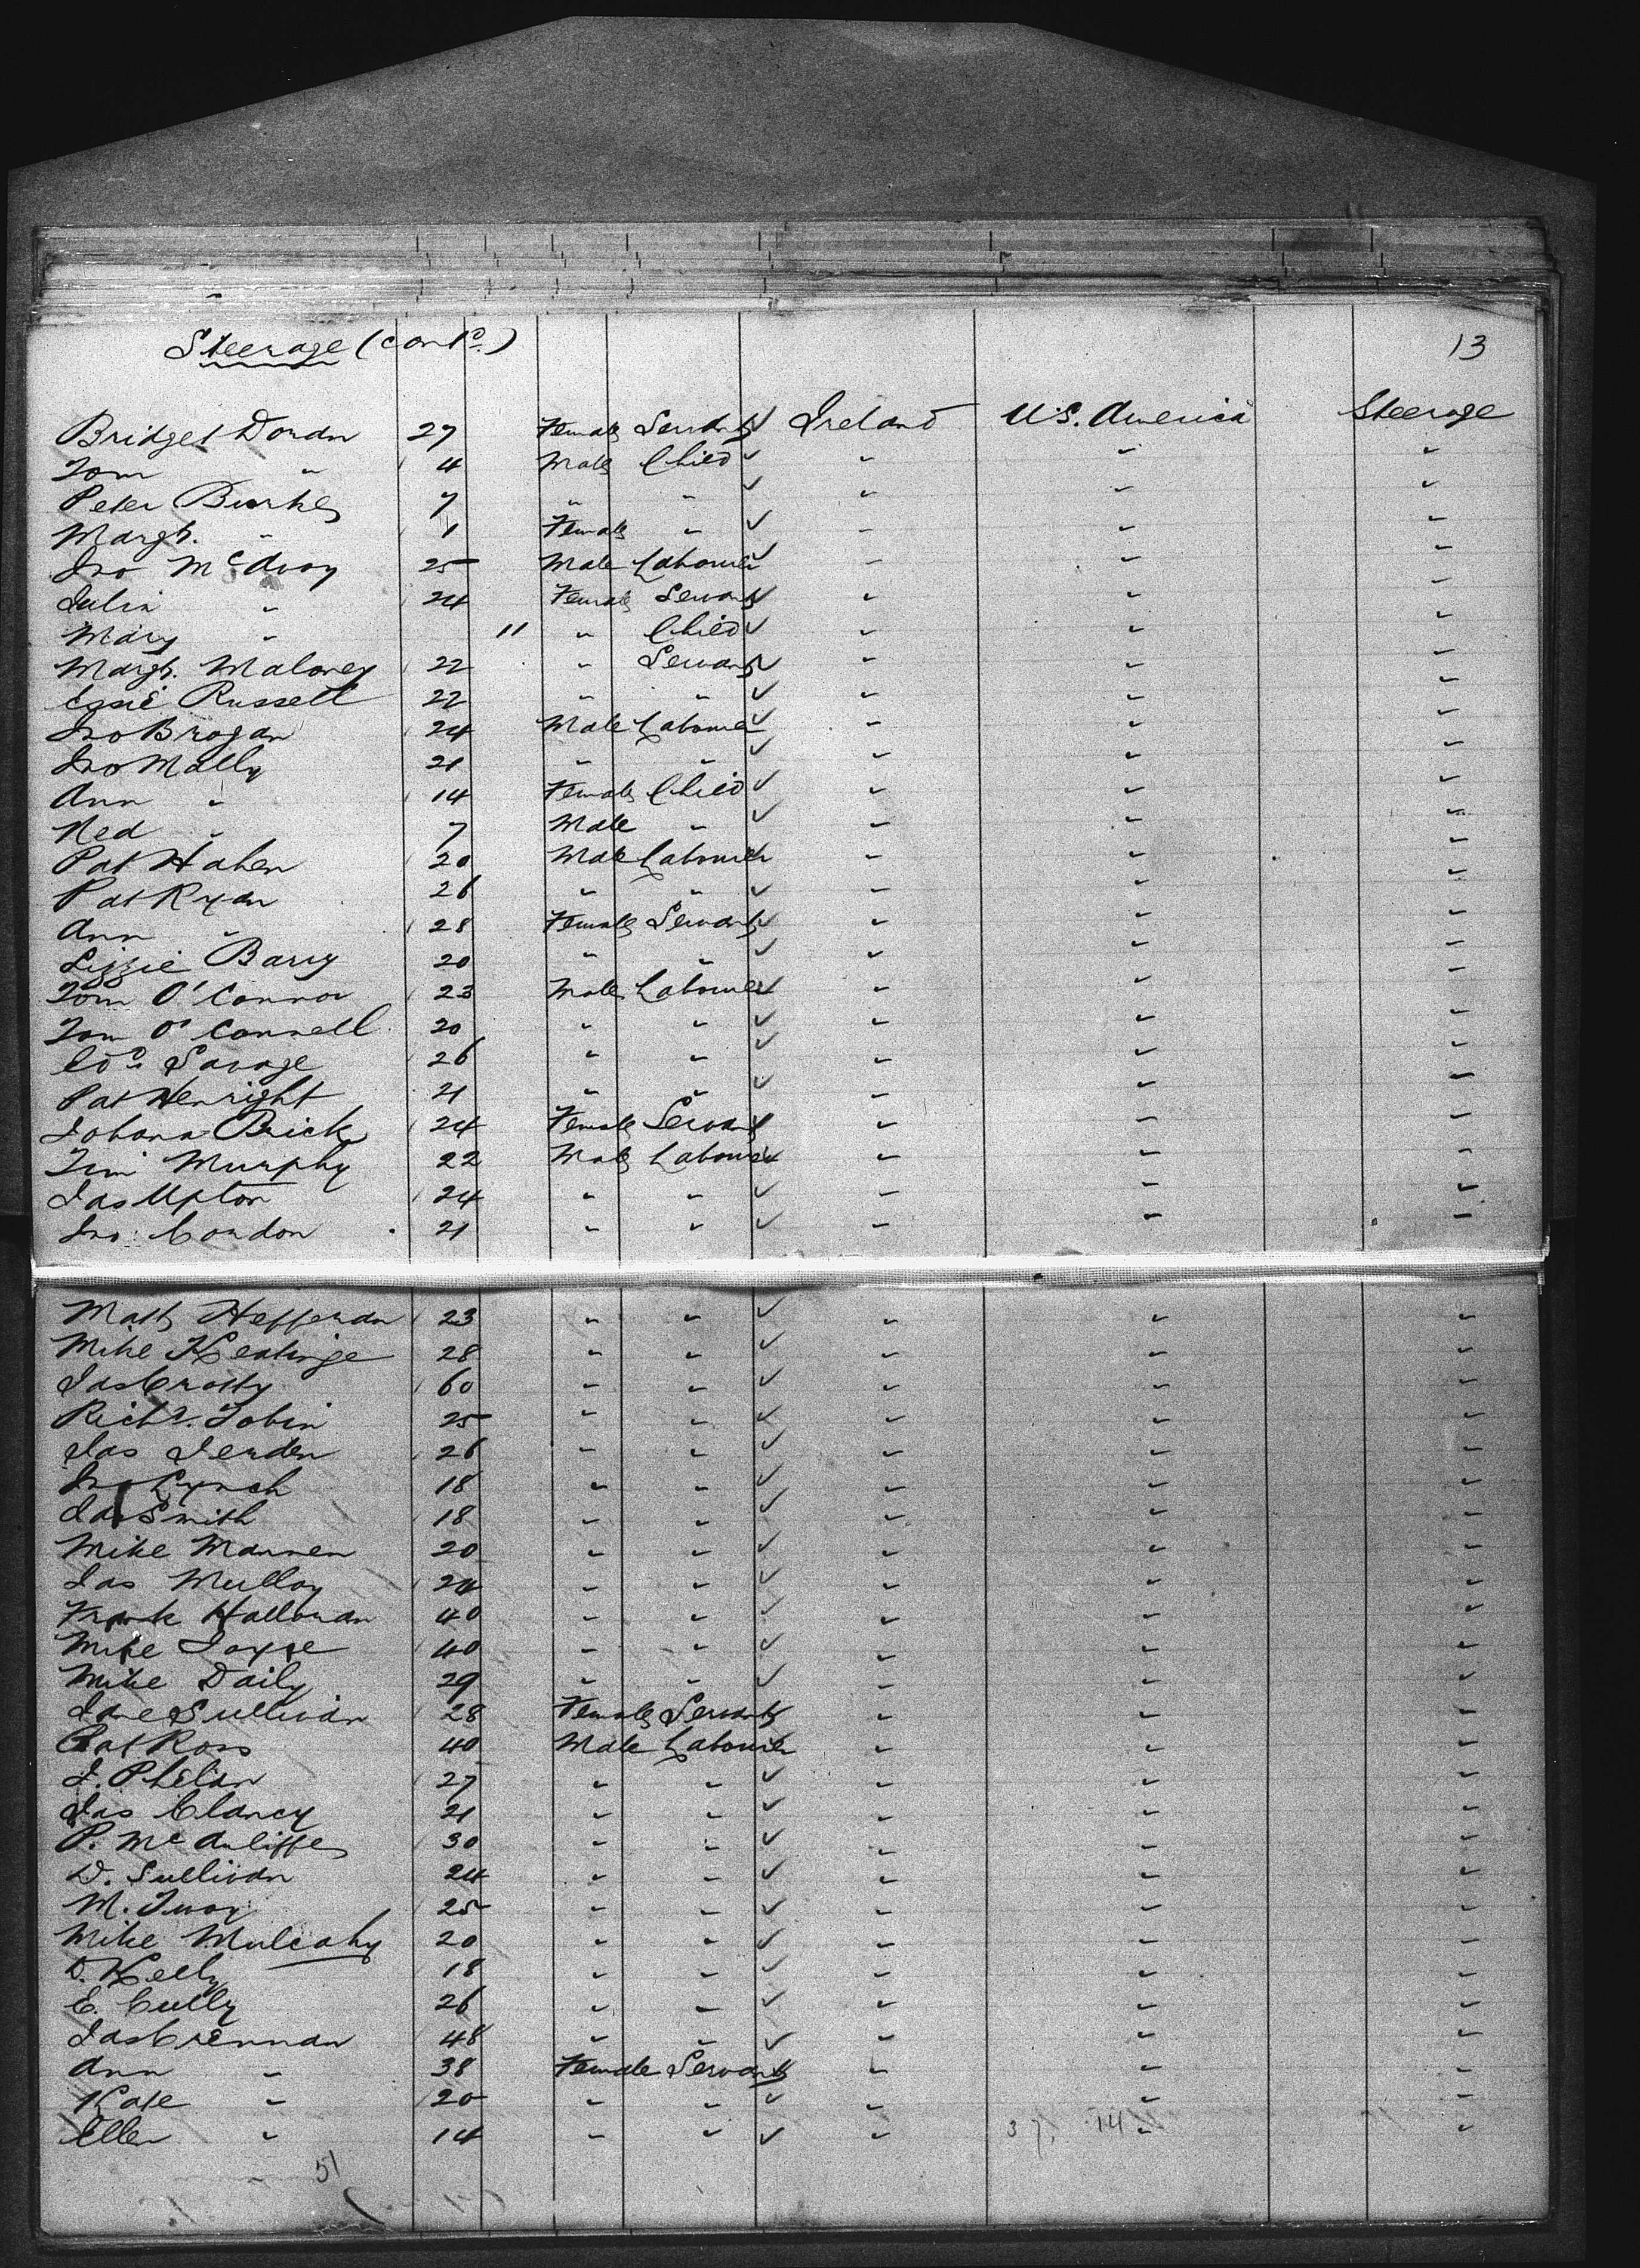 Steerage (contd.) 13
Bridget Doran 27 Female Servant ✓ Ireland U.S. America Steerage
Tom " 4 Male Child ✓ " " "
Peter Burke 7 " " ✓ " " "
Margt. " 1 Female " ✓ " " "
Jno McAvoy 25 Male Labourer ✓ " " "
Julia " 24 Female Servant ✓ " " "
Mary " 11 " Child ✓ " " "
Margt. Maloney 22 " Servant ✓ " " "
Essie Russell 22 " " ✓ " " "
Jno Brogan 24 Male Labourer ✓ " " "
Jno Mally 21 " " ✓ " " "
Ann " 14 Female Child ✓ " " "
Ned " 7 Male " ✓ " " "
Pat Hahen 20 Male Labourer " " "
Pat Ryan 26 " " ✓ " " "
Ann " 28 Female Servant ✓ " " "
Lizzie Barry 20 " " ✓ " " "
Tom O'Connor 23 Male Labourer ✓ " " "
Tom O'Connell 20 " " ✓ " " "
Edd. Savage 26 " " ✓ " " "
Pat Henright 21 " " ✓ " " "
Johana Brick 24 Female Servant " " "
Tim Murphy 22 Male Labourer " " "
Jas Upton 24 " " ✓ " " "
Jno: Condon 21 " " ✓ " " "
Matt Hefferan 23 " " ✓ " " "
Mike Keatinge 28 " " ✓ " " "
Jas Crotty 60 " " ✓ " " "
Richd. Tobin 25 " " ✓ " " "
Jas 26 " " ✓ " " "
Jno Lynch 18 " " ✓ " " "
Jas Smith 18 " " ✓ " " "
Mike Mannen 20 " " ✓ " " "
Jas Mulloy 24 " " ✓ " " "
Frank Halloran 40 " " ✓ " " "
Mike Joyce 40 " " ✓ " " "
Mike Daily 29 " " ✓ " " "
Jane Sullivan 28 Female Servant ✓ " " "
Pat Ross 40 Male Labourer " " "
J. Phelan 27 " " ✓ " " "
Jas Clancy 21 " " ✓ " " "
P. McAuliffe 30 " " ✓ " " "
D. Sullivan 24 " " ✓ " " "
M. Tuoy 25 " " ✓ " " "
Mike Mulcahy 20 " " ✓ " " "
D. Kelly 18 " " ✓ " " "
E. Cully 26 " " ✓ " " "
Jas Crennan 48 " " ✓ " " "
Ann " 38 Female Servant ✓ " " "
Kate " 20 " " ✓ " " "
Ellen " 14 " " ✓ " " "
37. 14
51